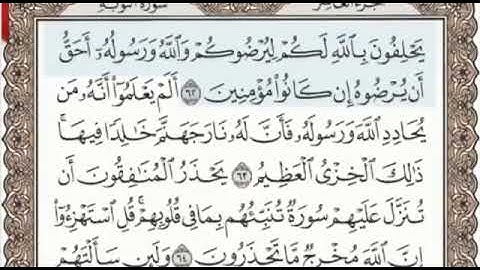 الجزء العاشر سورة التوبة
يَحْلِفُونَ بِٱللَّهِ لَكُمْ لِيُرْضُوكُمْ وَٱللَّهُ وَرَسُولُهُۥٓ أَحَقُّ
أَن يُرْضُوهُ إِن كَانُوا۟ مُؤْمِنِينَ ٦٢ أَلَمْ يَعْلَمُوٓا۟ أَنَّهُۥ مَن
يُحَادِدِ ٱللَّهَ وَرَسُولَهُۥ فَأَنَّ لَهُۥ نَارَ جَهَنَّمَ خَٰلِدًا فِيهَا ۚ
ذَٰلِكَ ٱلْخِزْىُ ٱلْعَظِيمُ ٦٣ يَحْذَرُ ٱلْمُنَٰفِقُونَ أَن
تُنَزَّلَ عَلَيْهِمْ سُورَةٌ تُنَبِّئُهُم بِمَا فِى قُلُوبِهِمْ ۚ قُلِ ٱسْتَهْزِءُوٓا۟
إِنَّ ٱللَّهَ مُخْرِجٌ مَّا تَحْذَرُونَ ٦٤ وَلَئِن سَأَلْتَهُمْ